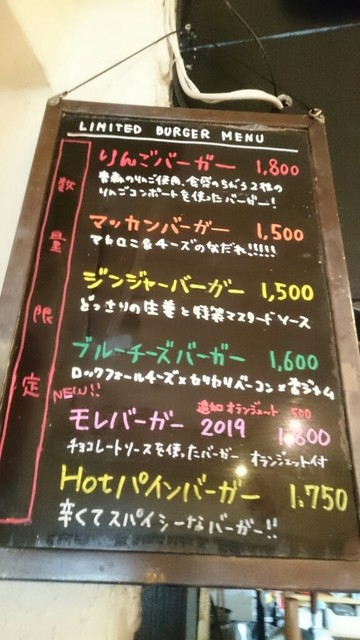 LIMITED BURGER MENU
数量限定
りんごバーガー 1,800
青森のりんご使用、食感のちがう2種の
りんごコンポートを使ったバーガー!
マッカンバーガー 1,500
マカロニ&チーズのなだれ!!!!!
ジンジャーバーガー 1,500
どっさりの生姜と特製マスタードソース
ブルーチーズバーガー 1,600
ロックフォールチーズ×カリカリベーコン×杏ジャム
NEW!!
追加オランジェット 500
モレバーガー 2019 1,800
チョコレートソースを使ったバーガー オランジェット付
Hotパインバーガー 1,750
辛くてスパイシーなバーガー!!